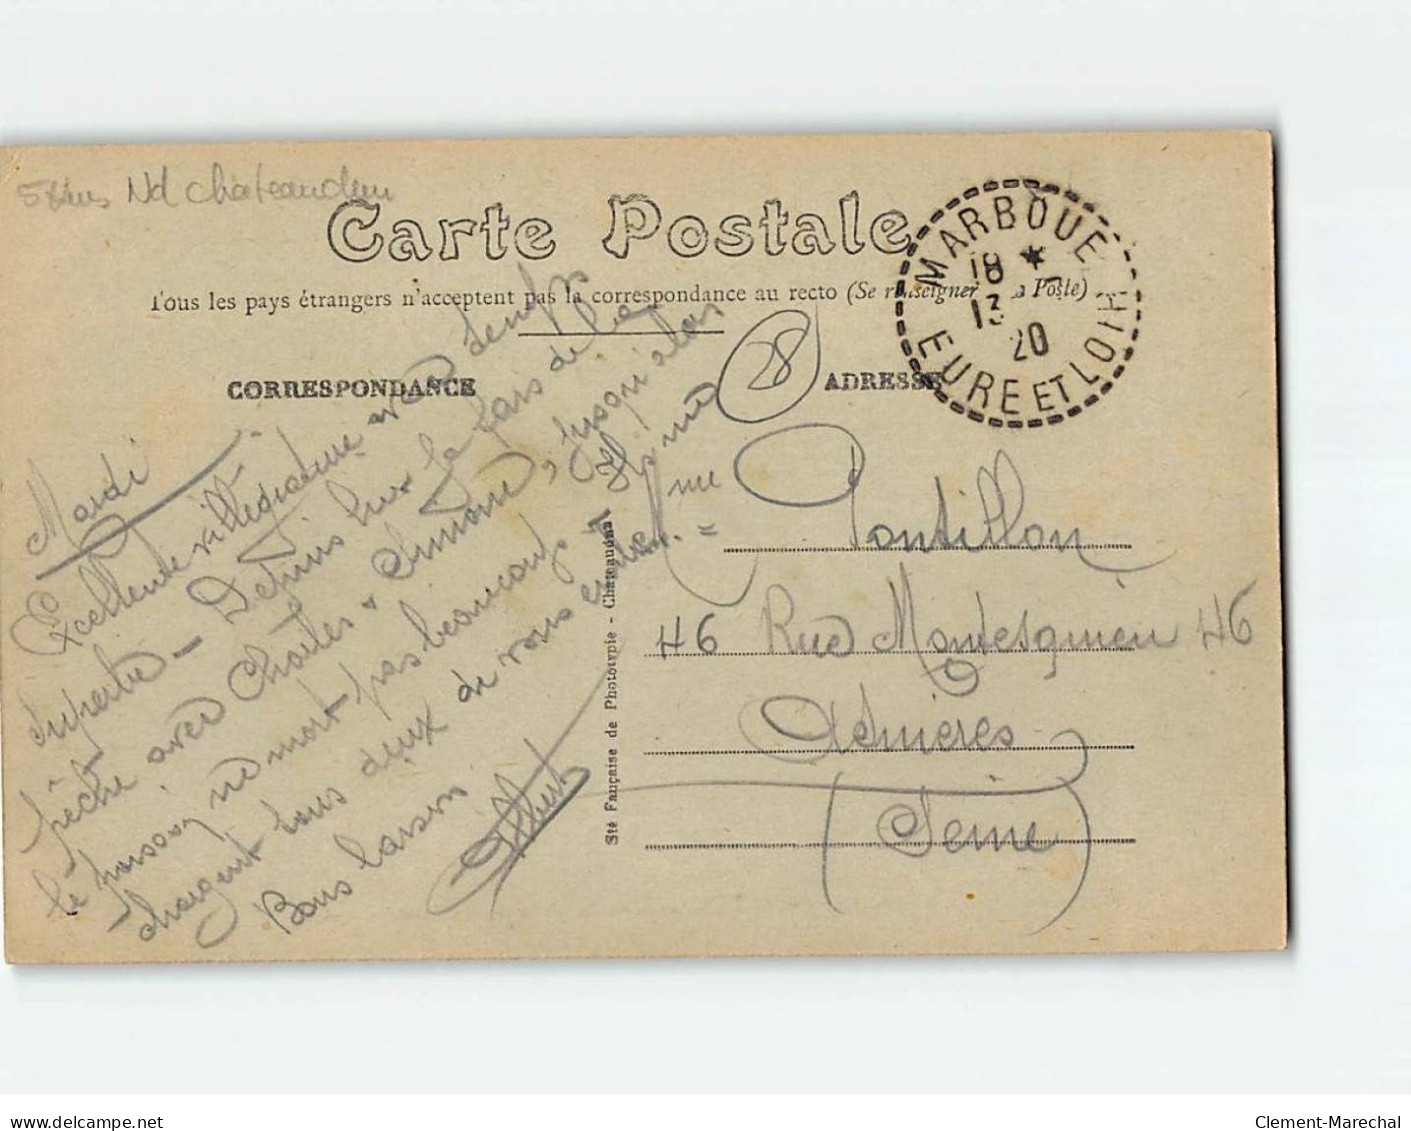 58bus Nd Chateaudun
Carte Postale
Tous les pays étrangers n'acceptent pas la correspondance au recto (Se renseigner à la Poste)
CORRESPONDANCE
ADRESSE
MARBOUE
18 *
13
20
EURE ET LOIR
28
Mardi
Excellente villégiature avec temps
superbe - Depuis hier je fais de la
pêche avec Charles & Simone, jusqu'alors
le poisson ne mord pas beaucoup. Ils me
chargent tous deux de vous embr.
Bons baisers
Albert
Sté Française de Phototypie - Chateaudun
Mme Pontillon
46 Rue Montesquieu 46
Asnières
(Seine)
delcampe.net
Clement-Marechal